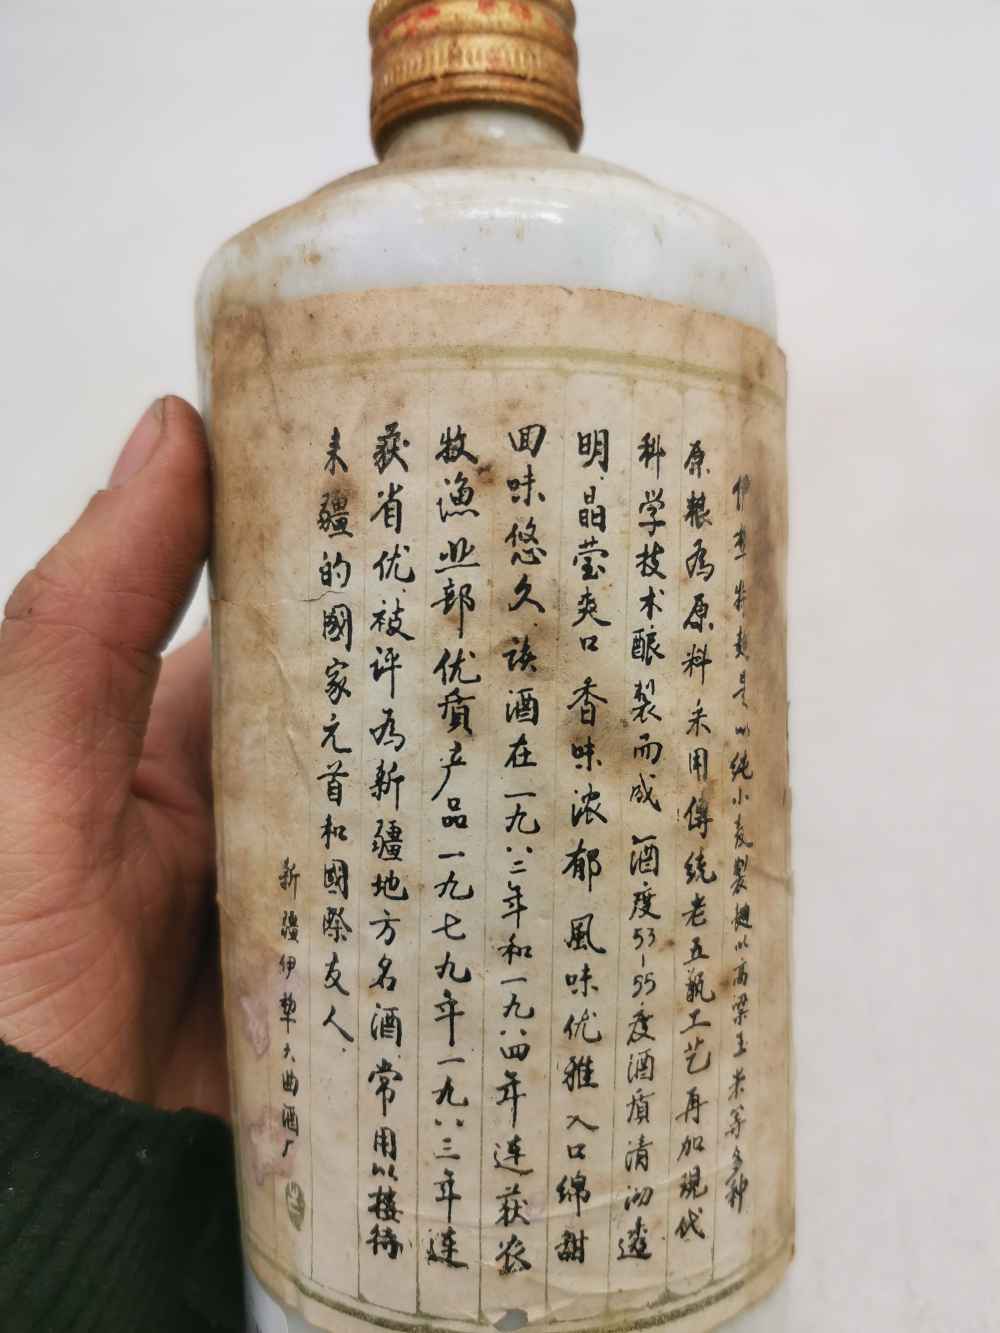 伊犁特麯是以纯小麦製麯以高粱玉米等多种
原粮為原料采用傳统老五甑工艺再加現代
科学技术酿製而成酒度53-55度酒質清沏透
明、晶莹爽口香味浓郁風味优雅入口绵甜
回味悠久、该酒在一九八二年和一九八四年连获农
牧渔业部优質产品一九七九年一九八三年连
获省优、被评為新疆地方名酒、常用以接待
来疆的國家元首和國際友人.
新疆伊犂大曲酒厂